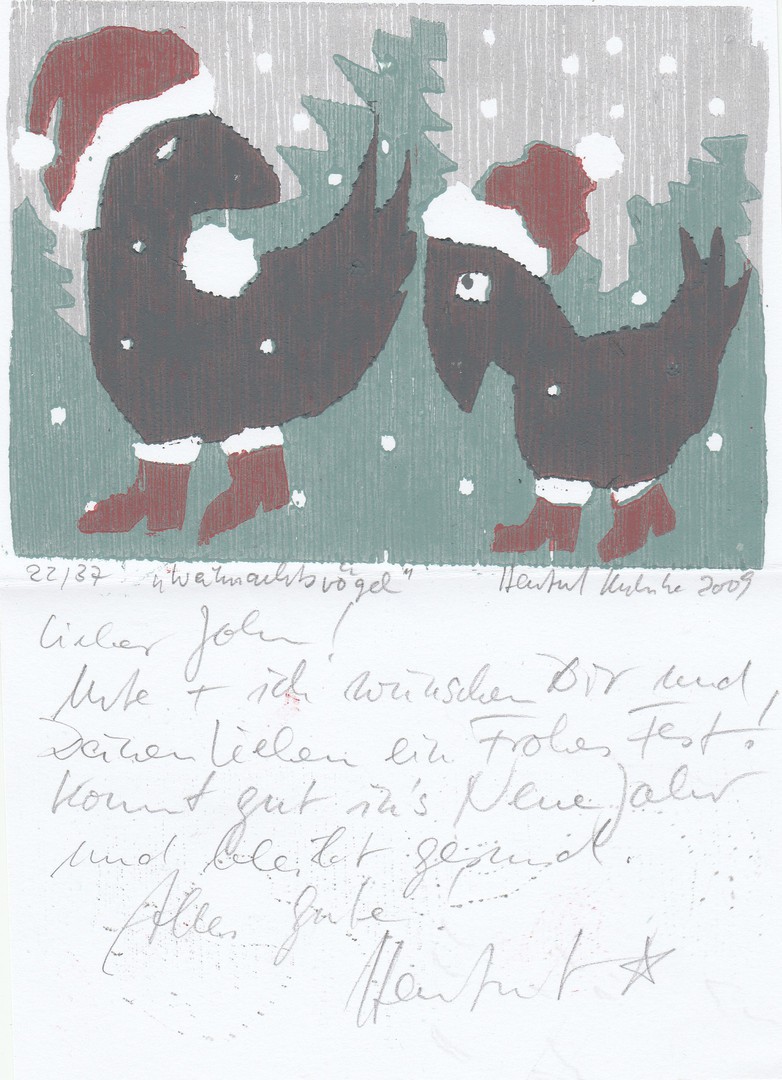 22/37 „Weihnachtsvögel“ 2009
Lieber John!
Ute + ich wünschen Dir und
Deinen Lieben ein Frohes Fest!
Kommt gut in's Neue Jahr
und bleibt gesund.
Alles Gute
Hartmut